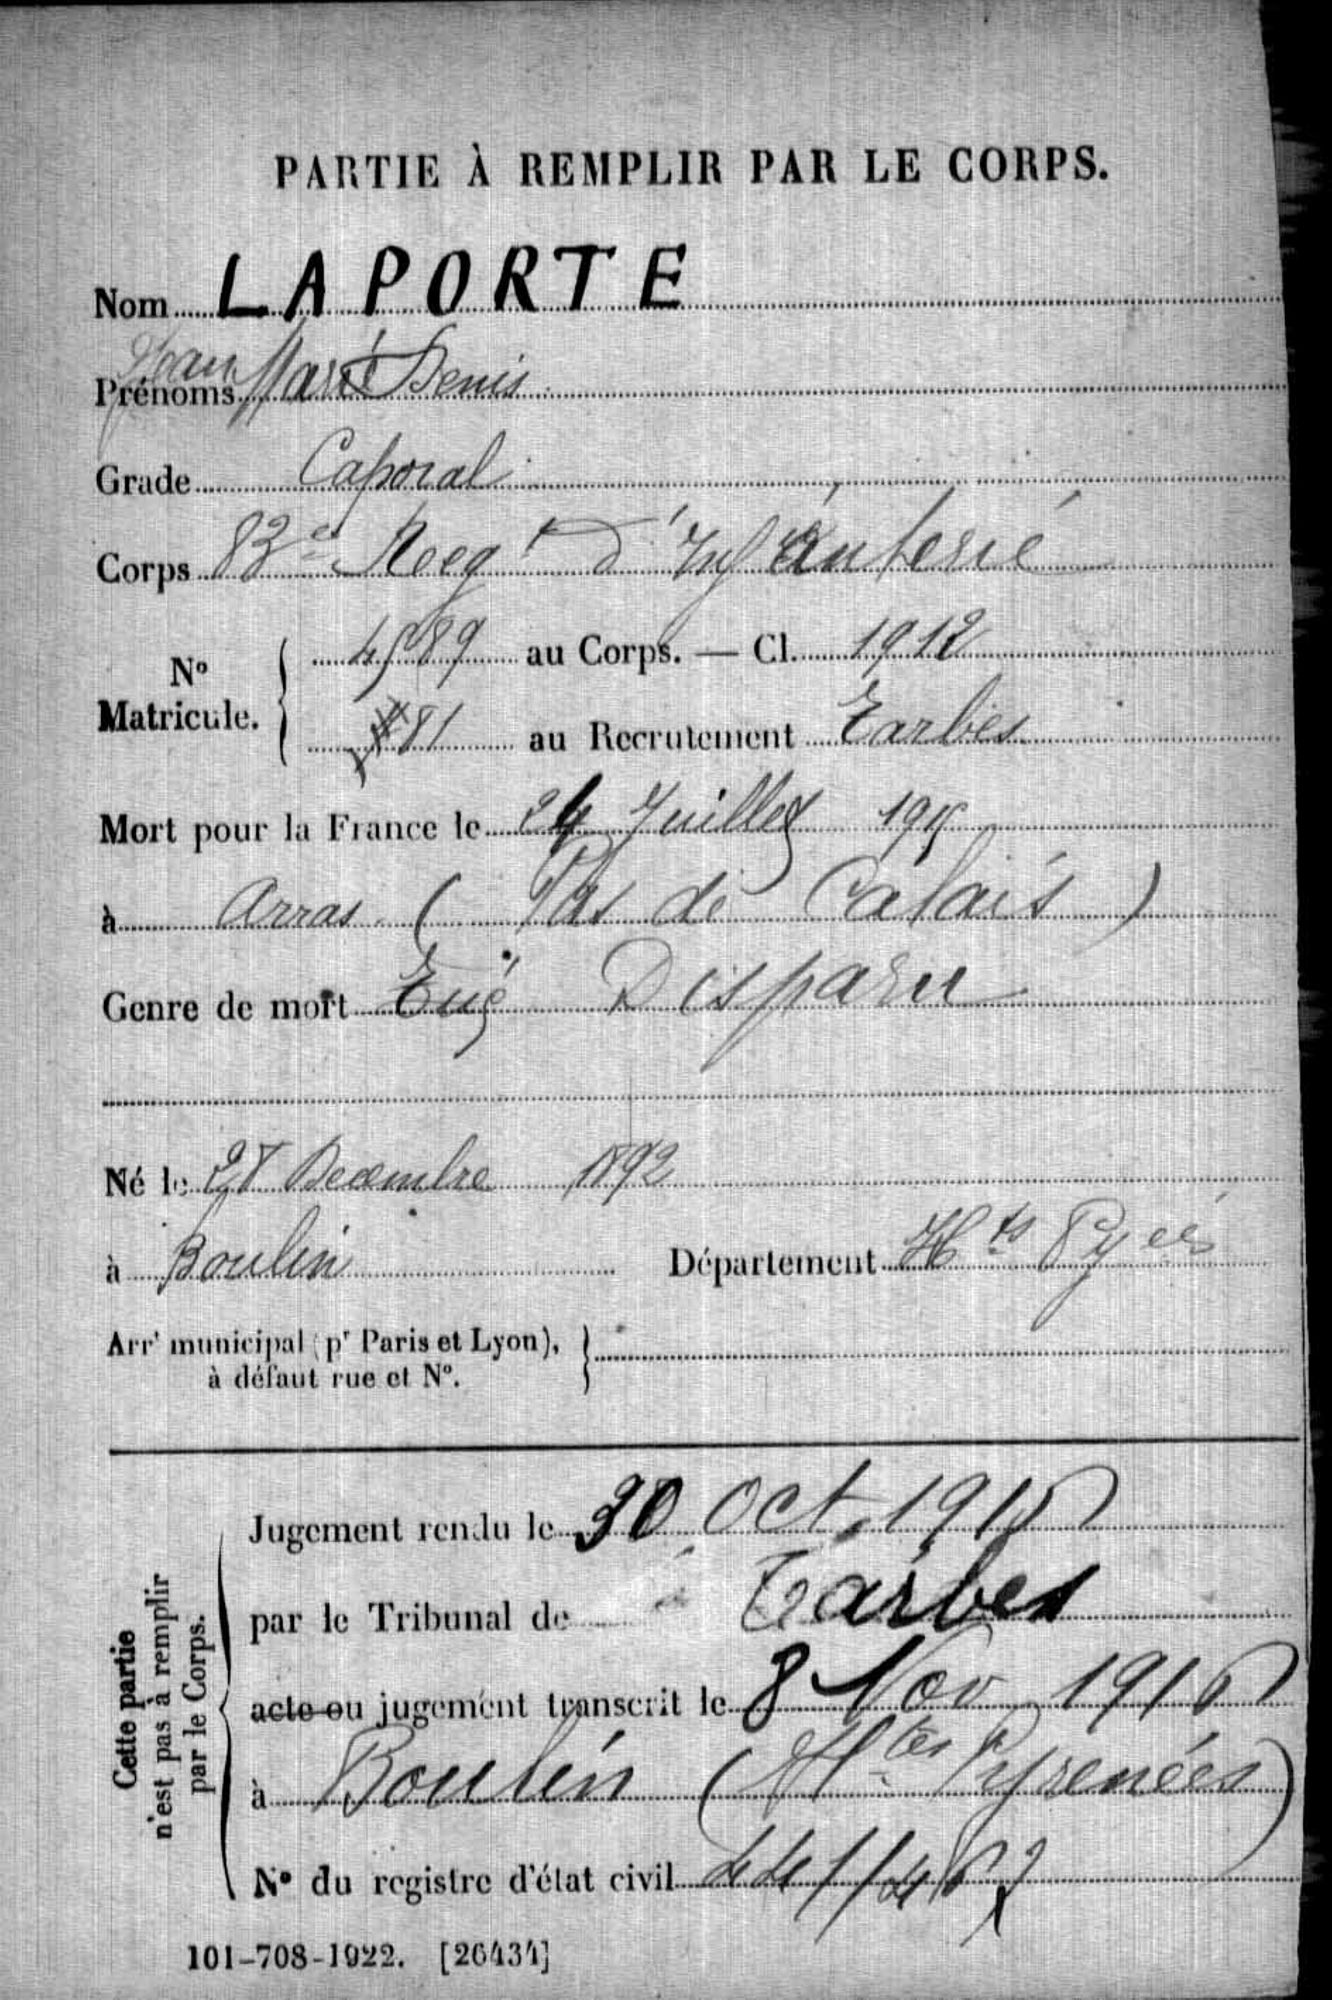 PARTIE À REMPLIR PAR LE CORPS.
Nom LAPORTE
Prénoms Jean Marie Denis
Grade Caporal
Corps 83e Reegt d'Infanterie
No Matricule. 4589 au Corps. — Cl. 1912
81 au Recrutement Tarbes
Mort pour la France le 24 Juillet 1915
à Arras (Pas de Calais)
Genre de mort Tué Disparu
Né le 28 Decembre 1892
à Boulin Département Htes Pyées
Arrt municipal (pr Paris et Lyon),
à défaut rue et No.
Cette partie n'est pas à remplir par le Corps.
Jugement rendu le 30 Oct. 1916
par le Tribunal de Tarbes
acte ou jugement transcrit le 8 Nov 1916
à Boulin (Htes Pyrenées)
No du registre d'état civil
101-708-1922. [26434]